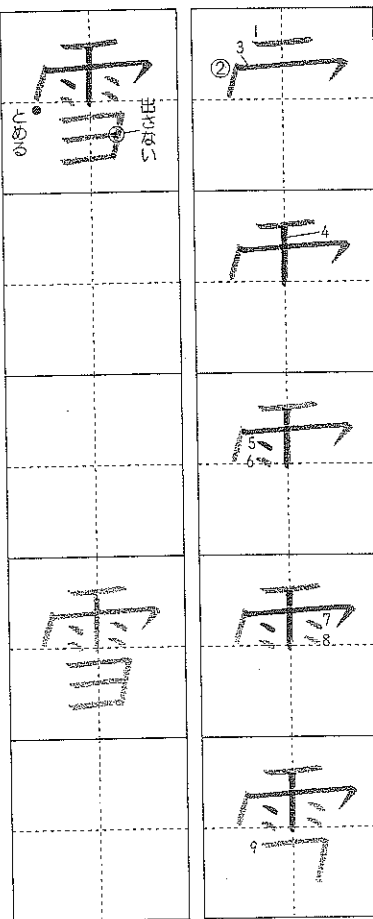 1
3
②
4
5
6
7
8
9
出さない
雪
とめる
雪